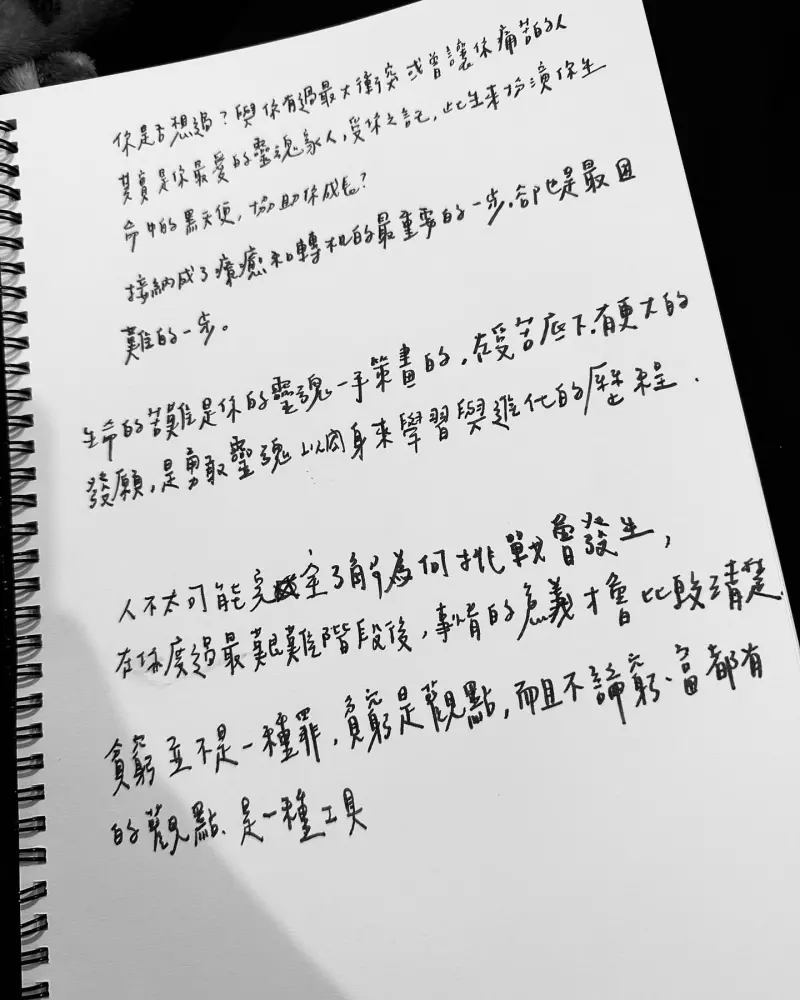 你是否想過?與你有過最大衝突或曾讓你痛苦的人
其實是你最愛的靈魂家人,受你之託,此生來扮演你生
命中的黑天使,協助你成長?
接納成了療癒和轉和的最重要的一步.卻也是最困
難的一步。
生命的苦難是你的靈魂一手策畫的,在受苦底下.有更大的
發願,是勇敢靈魂以肉身來學習與進化的歷程.
人不太可能完全了解為何挑戰會發生,
在你度過最艱難階段後,事情的意義才會比較清楚.
貧窮並不是一種罪,貧窮是觀點,而且不論窮、富都有
的觀點.是一種工具